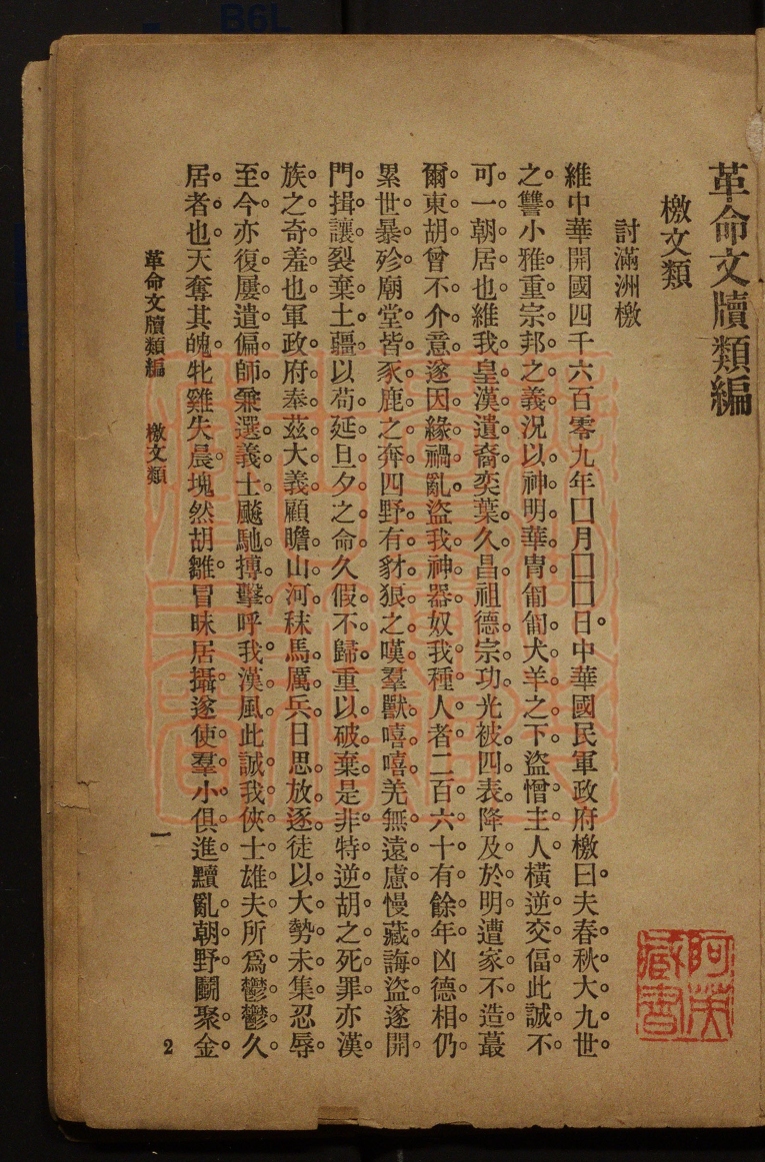 B6L
革命文牘類編
檄文類
討滿洲檄
維中華開國四千六百零九年囗月囗囗日。中華國民軍政府檄曰。夫春。秋。大。九。世。
之。讐。小。雅。重。宗。邦。之。義。況。以。神。明。華。冑。匍。匐。犬。羊。之。下。盜。憎。主。人。橫。逆。交。偪。此。誠。不。
可。一。朝。居。也。維。我。皇。漢。遺。裔。奕。葉。久。昌。祖。德。宗。功。光。被。四。表。降。及。於。明。遭。家。不。造。蕞。
爾。東。胡。曾。不。介。意。遂。因。緣。禍。亂。盜。我。神。器。奴。我。種。人。者。二。百。六。十。有。餘。年。凶。德。相。仍。
累。世。暴。殄。廟。堂。皆。豕。鹿。之。奔。四。野。有。豺。狼。之。嘆。羣。獸。嘻。嘻。羌。無。遠。慮。慢。藏。誨。盜。遂。開。
門。揖。讓。裂。棄。土。疆。以。苟。延。旦。夕。之。命。久。假。不。歸。重。以。破。棄。是。非。特。逆。胡。之。死。罪。亦。漢。
族。之。奇。羞。也。軍。政。府。奉。茲。大。義。顧。瞻。山。河。秣。馬。厲。兵。日。思。放。逐。徒。以。大。勢。未。集。忍。辱。
至。今。亦。復。屢。遣。偏。師。兼。選。義。士。飈。馳。搏。擊。呼。我。漢。風。此。誠。我。俠。士。雄。夫。所。爲。鬱。鬱。久。
居。者。也。天。奪。其。魄。牝。雞。失。晨。塊。然。胡。雛。冒。昧。居。攝。遂。使。羣。小。俱。進。黷。亂。朝。野。鬭。聚。金。
革命文牘類編　檄文類　一
2